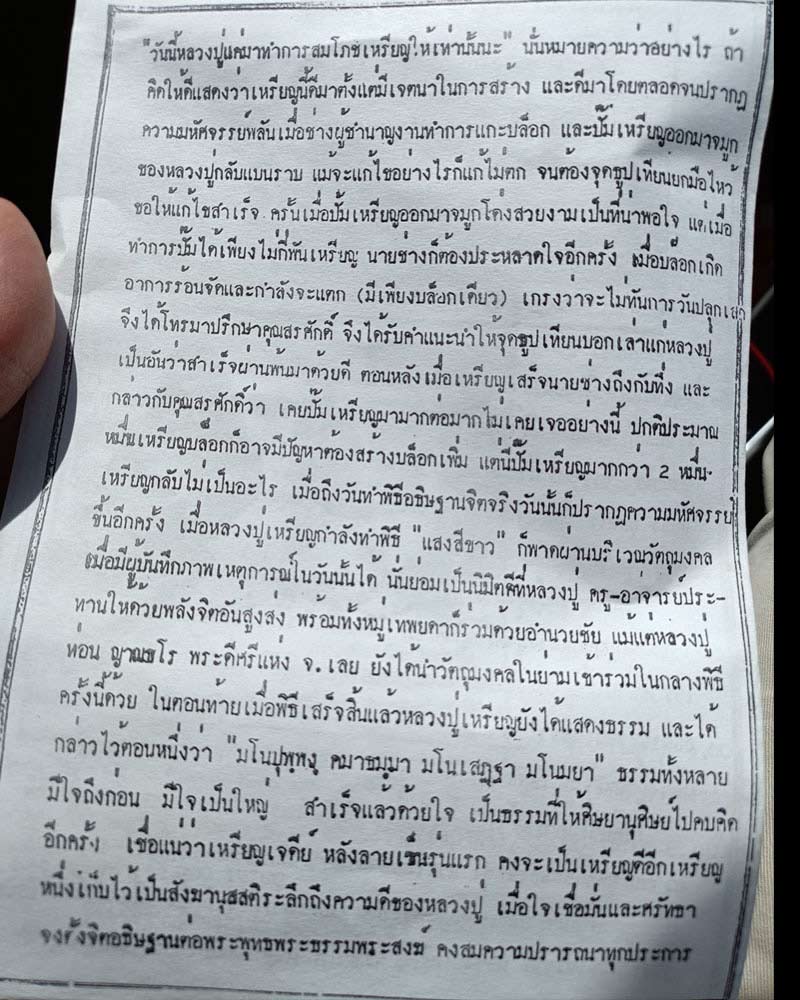 "วันนี้หลวงปู่แค่มาทำการสมโภชเหรียญให้เท่านั้นนะ" นั่นหมายความว่าอย่างไร ถ้า
คิดให้ดีแสดงว่าเหรียญนี้ดีมาตั้งแต่มีเจตนาในการสร้าง และดีมาโดยตลอดจนปรากฏ
ความมหัศจรรย์พลันเมื่อช่างผู้ชำนาญงานทำการแกะบล็อก และปั๊มเหรียญออกมาจมูก
ของหลวงปู่กลับแบนราบ แม้จะแก้ไขอย่างไรก็แก้ไม่ตก จนต้องจุดธูปเทียนยกมือไหว้
ขอให้แก้ไขสำเร็จ ครั้นเมื่อปั๊มเหรียญออกมาจมูกโด่งสวยงามเป็นที่น่าพอใจ แต่เมื่อ
ทำการปั๊มได้เพียงไม่กี่พันเหรียญ นายช่างก็ต้องประหลาดใจอีกครั้ง เมื่อบล็อกเกิด
อาการร้อนจัดและกำลังจะแตก (มีเพียงบล็อกเดียว) เกรงว่าจะไม่ทันการวันปลุกเสก
จึงได้โทรมาปรึกษาคุณสรศักดิ์ จึงได้รับคำแนะนำให้จุดธูปเทียนบอกเล่าแก่หลวงปู่
เป็นอันว่าสำเร็จผ่านพ้นมาด้วยดี ตอนหลังเมื่อเหรียญเสร็จนายช่างถึงกับทึ่ง และ
กล่าวกับคุณสรศักดิ์ว่า เคยปั๊มเหรียญมามากต่อมากไม่เคยเจออย่างนี้ ปกติประมาณ
หมื่นเหรียญบล็อกก็อาจมีปัญหาต้องสร้างบล็อกเพิ่ม แต่นี่ปั๊มเหรียญมากกว่า 2 หมื่น-
เหรียญกลับไม่เป็นอะไร เมื่อถึงวันทำพิธีอธิษฐานจิตจริงวันนั้นก็ปรากฏความมหัศจรรย์
ขึ้นอีกครั้ง เมื่อหลวงปู่เหรียญกำลังทำพิธี "แสงสีขาว" ก็พาดผ่านบริเวณวัตถุมงคล
เมื่อมีผู้บันทึกภาพเหตุการณ์ในวันนั้นได้ นั่นย่อมเป็นนิมิตดีที่หลวงปู่ ครู-อาจารย์ประ-
ทานให้ด้วยพลังจิตอันสูงส่ง พร้อมทั้งหมู่เทพยดาก็ร่วมด้วยอำนวยชัย แม้แต่หลวงปู่
ท่อน ญาณธโร พระดีศรีแห่ง จ.เลย ยังได้นำวัตถุมงคลในย่ามเข้าร่วมในกลางพิธี
ครั้งนี้ด้วย ในตอนท้ายเมื่อพิธีเสร็จสิ้นแล้วหลวงปู่เหรียญยังได้แสดงธรรม และได้
กล่าวไว้ตอนหนึ่งว่า "มโนปุพฺพงฺ คมาธมฺมา มโนเสฏฺฐา มโนมยา" ธรรมทั้งหลาย
มีใจถึงก่อน มีใจเป็นใหญ่ สำเร็จแล้วด้วยใจ เป็นธรรมที่ให้ศิษยานุศิษย์ไปคบคิด
อีกครั้ง เชื่อแน่ว่าเหรียญเจดีย์ หลังลายเซ็นรุ่นแรก คงจะเป็นเหรียญดีอีกเหรียญ
หนึ่งเก็บไว้เป็นสังฆานุสสติระลึกถึงความดีของหลวงปู่ เมื่อใจเชื่อมั่นและศรัทธา
จงตั้งจิตอธิษฐานต่อพระพุทธพระธรรมพระสงฆ์ คงสมความปรารถนาทุกประการ